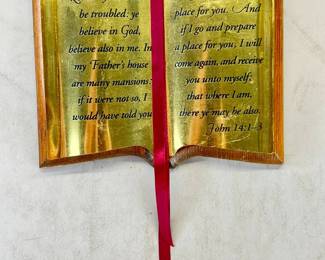 be troubled: ye
believe in God,
believe also in me. In
my Father's house
are many mansions:
if it were not so, I
would have told you
place for you. And
if I go and prepare
a place for you, I will
come again, and receive
you unto myself;
that where I am,
there ye may be also.
John 14:1-3